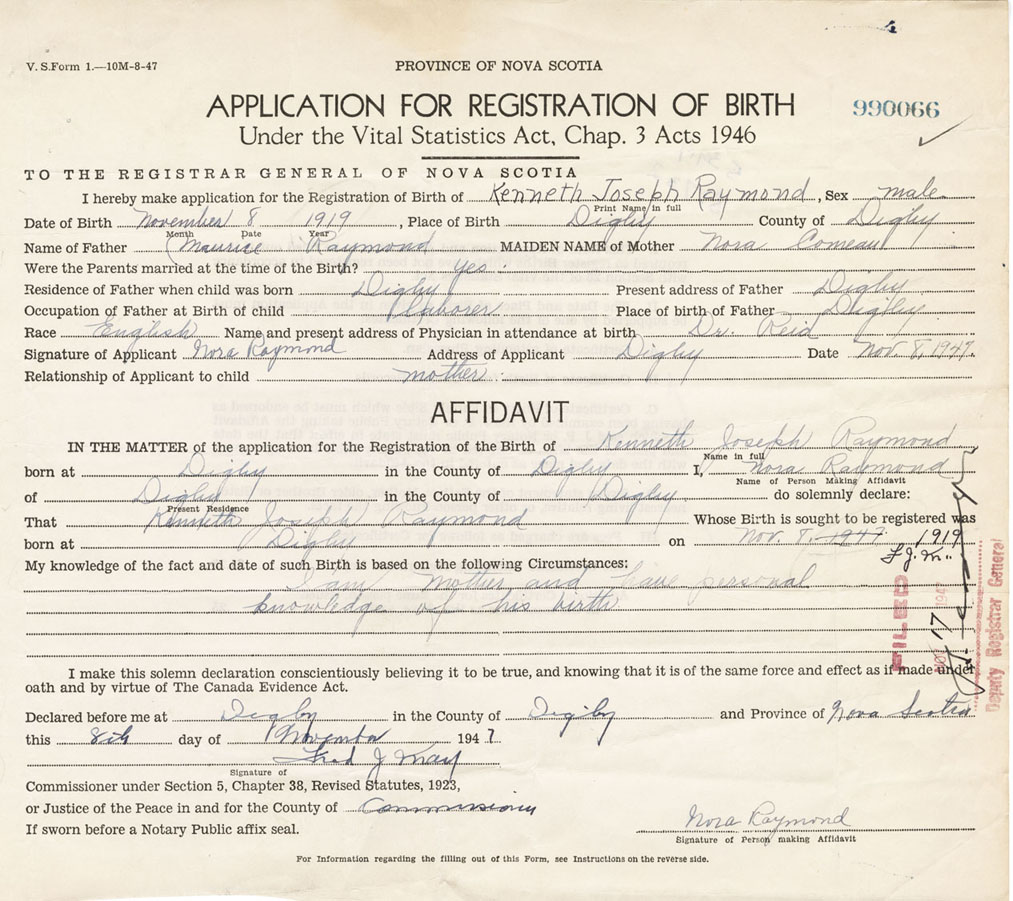 V. S. Form 1.—10M-8-47
PROVINCE OF NOVA SCOTIA
APPLICATION FOR REGISTRATION OF BIRTH
990066
Under the Vital Statistics Act, Chap. 3 Acts 1946
TO THE REGISTRAR GENERAL OF NOVA SCOTIA
I hereby make application for the Registration of Birth of Kenneth Joseph Raymond, Sex male
Print Name in full
Date of Birth November 8 1919, Place of Birth Digby County of Digby
Month Date Year
Name of Father Maurice Raymond MAIDEN NAME of Mother Nora Comeau
Were the Parents married at the time of the Birth? yes
Residence of Father when child was born Digby Present address of Father Digby
Occupation of Father at Birth of child laborer Place of birth of Father Digby
Race English Name and present address of Physician in attendance at birth Dr. Reid
Signature of Applicant Nora Raymond Address of Applicant Digby Date Nov 8, 1947.
Relationship of Applicant to child mother
AFFIDAVIT
IN THE MATTER of the application for the Registration of the Birth of Kenneth Joseph Raymond
Name in full
born at Digby in the County of Digby I, Nora Raymond
Name of Person Making Affidavit
of Digby in the County of Digby do solemnly declare:
Present Residence
That Kenneth Joseph Raymond Whose Birth is sought to be registered was
born at Digby on Nov. 8, 1947 1919
F.J.M.
My knowledge of the fact and date of such Birth is based on the following Circumstances:
I am mother and have personal
knowledge of his birth
FILED
NOV 17 1947
Deputy Registrar General
I make this solemn declaration conscientiously believing it to be true, and knowing that it is of the same force and effect as if made under
oath and by virtue of The Canada Evidence Act.
Declared before me at Digby in the County of Digby and Province of Nova Scotia
this 8th day of November 1947
Fred J May
Signature of
Commissioner under Section 5, Chapter 38, Revised Statutes, 1923,
or Justice of the Peace in and for the County of
If sworn before a Notary Public affix seal.
Nora Raymond
Signature of Person making Affidavit
For Information regarding the filling out of this Form, see Instructions on the reverse side.